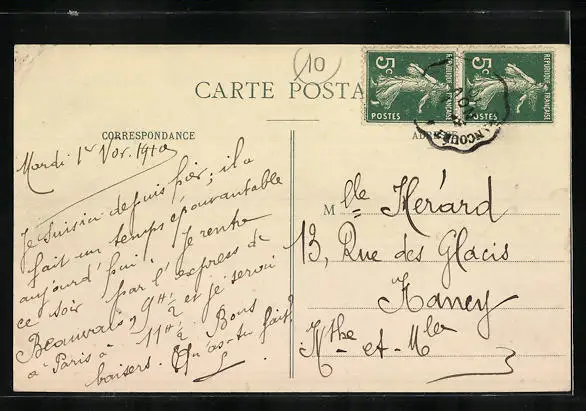 10
CARTE POSTA
5c 5c
RÉPUBLIQUE FRANÇAISE
POSTES POSTES
CORRESPONDANCE
Mardi 1er Nov. 1910
Je suis ici depuis hier ; il a
fait un temps épouvantable
aujourd'hui. Je rentre
ce soir par l'express de
Beauvais, 9H 1/2 et je serai
à Paris à 11H 1/2. Bons
baisers. Qu'as-tu fait?
Mlle Hérard
13, Rue des Glacis
Nancy
Mthe et Mlle